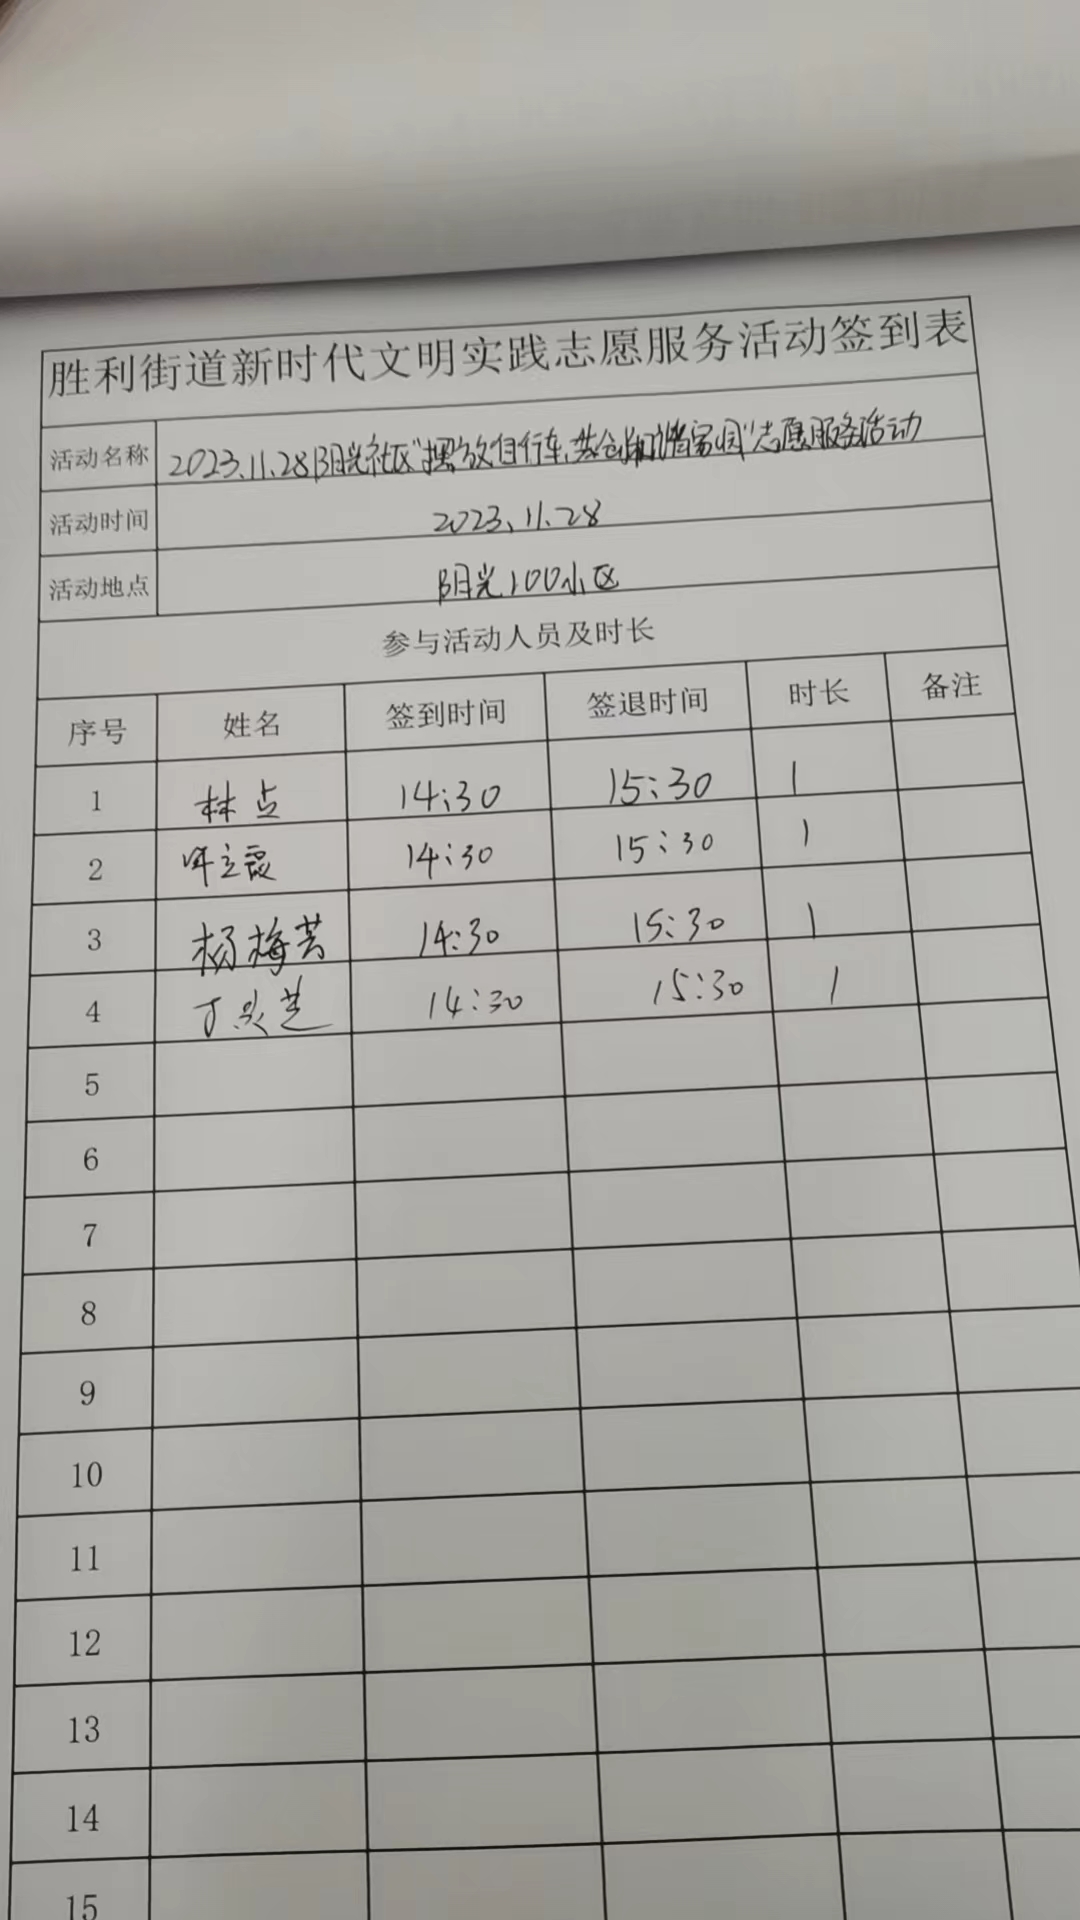 胜利街道新时代文明实践志愿服务活动签到表
活动名称 2023.11.28阳光社区"摆放自行车,共创和谐家园"志愿服务活动
活动时间 2023.11.28
活动地点 阳光100小区
参与活动人员及时长
序号 姓名 签到时间 签退时间 时长 备注
1 林点 14:30 15:30 1
2 14:30 15:30 1
3 杨梅芳 14:30 15:30 1
4 丁 14:30 15:30 1
5
6
7
8
9
10
11
12
13
14
15